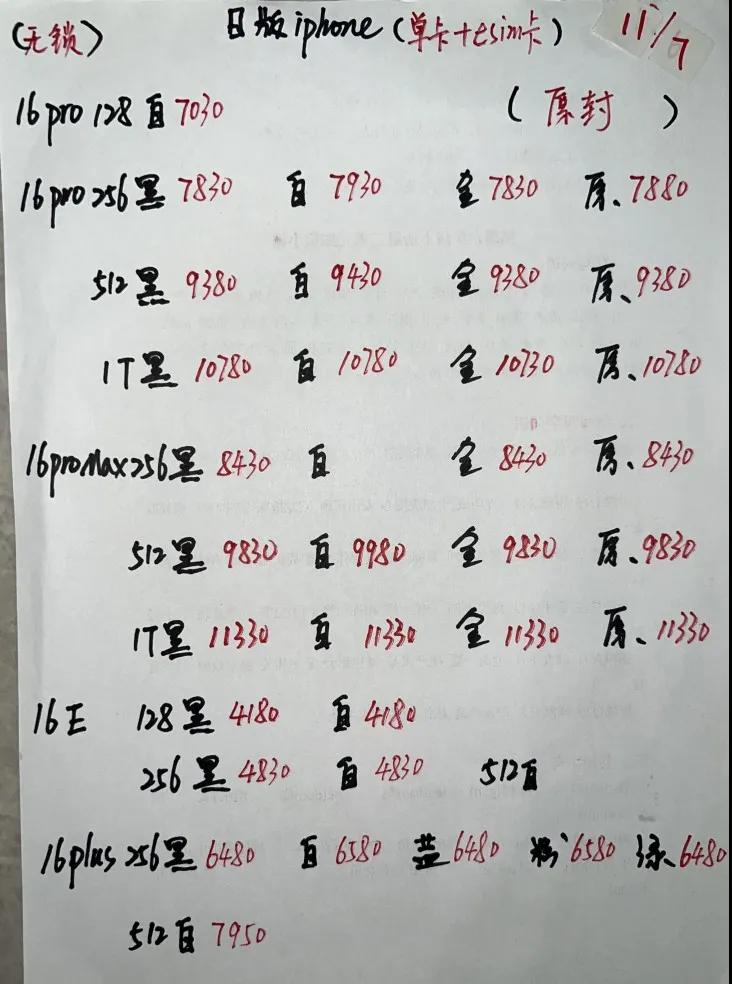 (无锁) 日版iphone(单卡+esim卡) 11/7
16pro 128 白 7030 (原封)
16pro 256 黑 7830 白 7930 金 7830 原、7880
512 黑 9380 白 9430 金 9380 原、9380
1T 黑 10780 白 10780 金 10730 原、10780
16proMax 256 黑 8430 白 金 8430 原、8430
512 黑 9830 白 9980 金 9830 原、9830
1T 黑 11330 白 11330 金 11330 原、11330
16E 128 黑 4180 白 4180
256 黑 4830 白 4830 512 白
16plus 256 黑 6480 白 6580 蓝 6480 粉 6580 绿 6480
512 白 7950